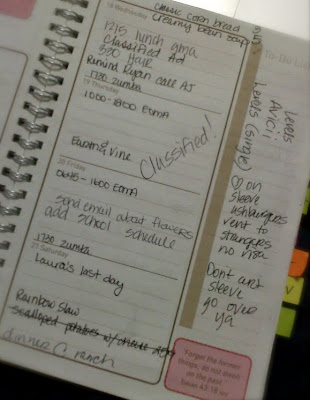 classic corn bread
creamy bean soup
18 Wednesday
1215 lunch gma
Classified Ad
530 Hair
Remind Ryan call AJ
1730 zumba
19 Thursday
1000-1800 EDMA
Earth & Vine
Classified!
20 Friday
0645-1600 EDMA
send email about flowers
add school schedule
1730 zumba
21 Saturday
Laura's last day
Rainbow Slaw
scalloped potatoes w/cheese
dinner C ranch
To-Do List
Levels
Avicii
Levels (single)
on
sleeve
vent to
strangers
no visa
Dont
sleeve
go over
ya
V
"Forget the former
things; do not dwell
on the past."
Isaiah 43:18 NIV